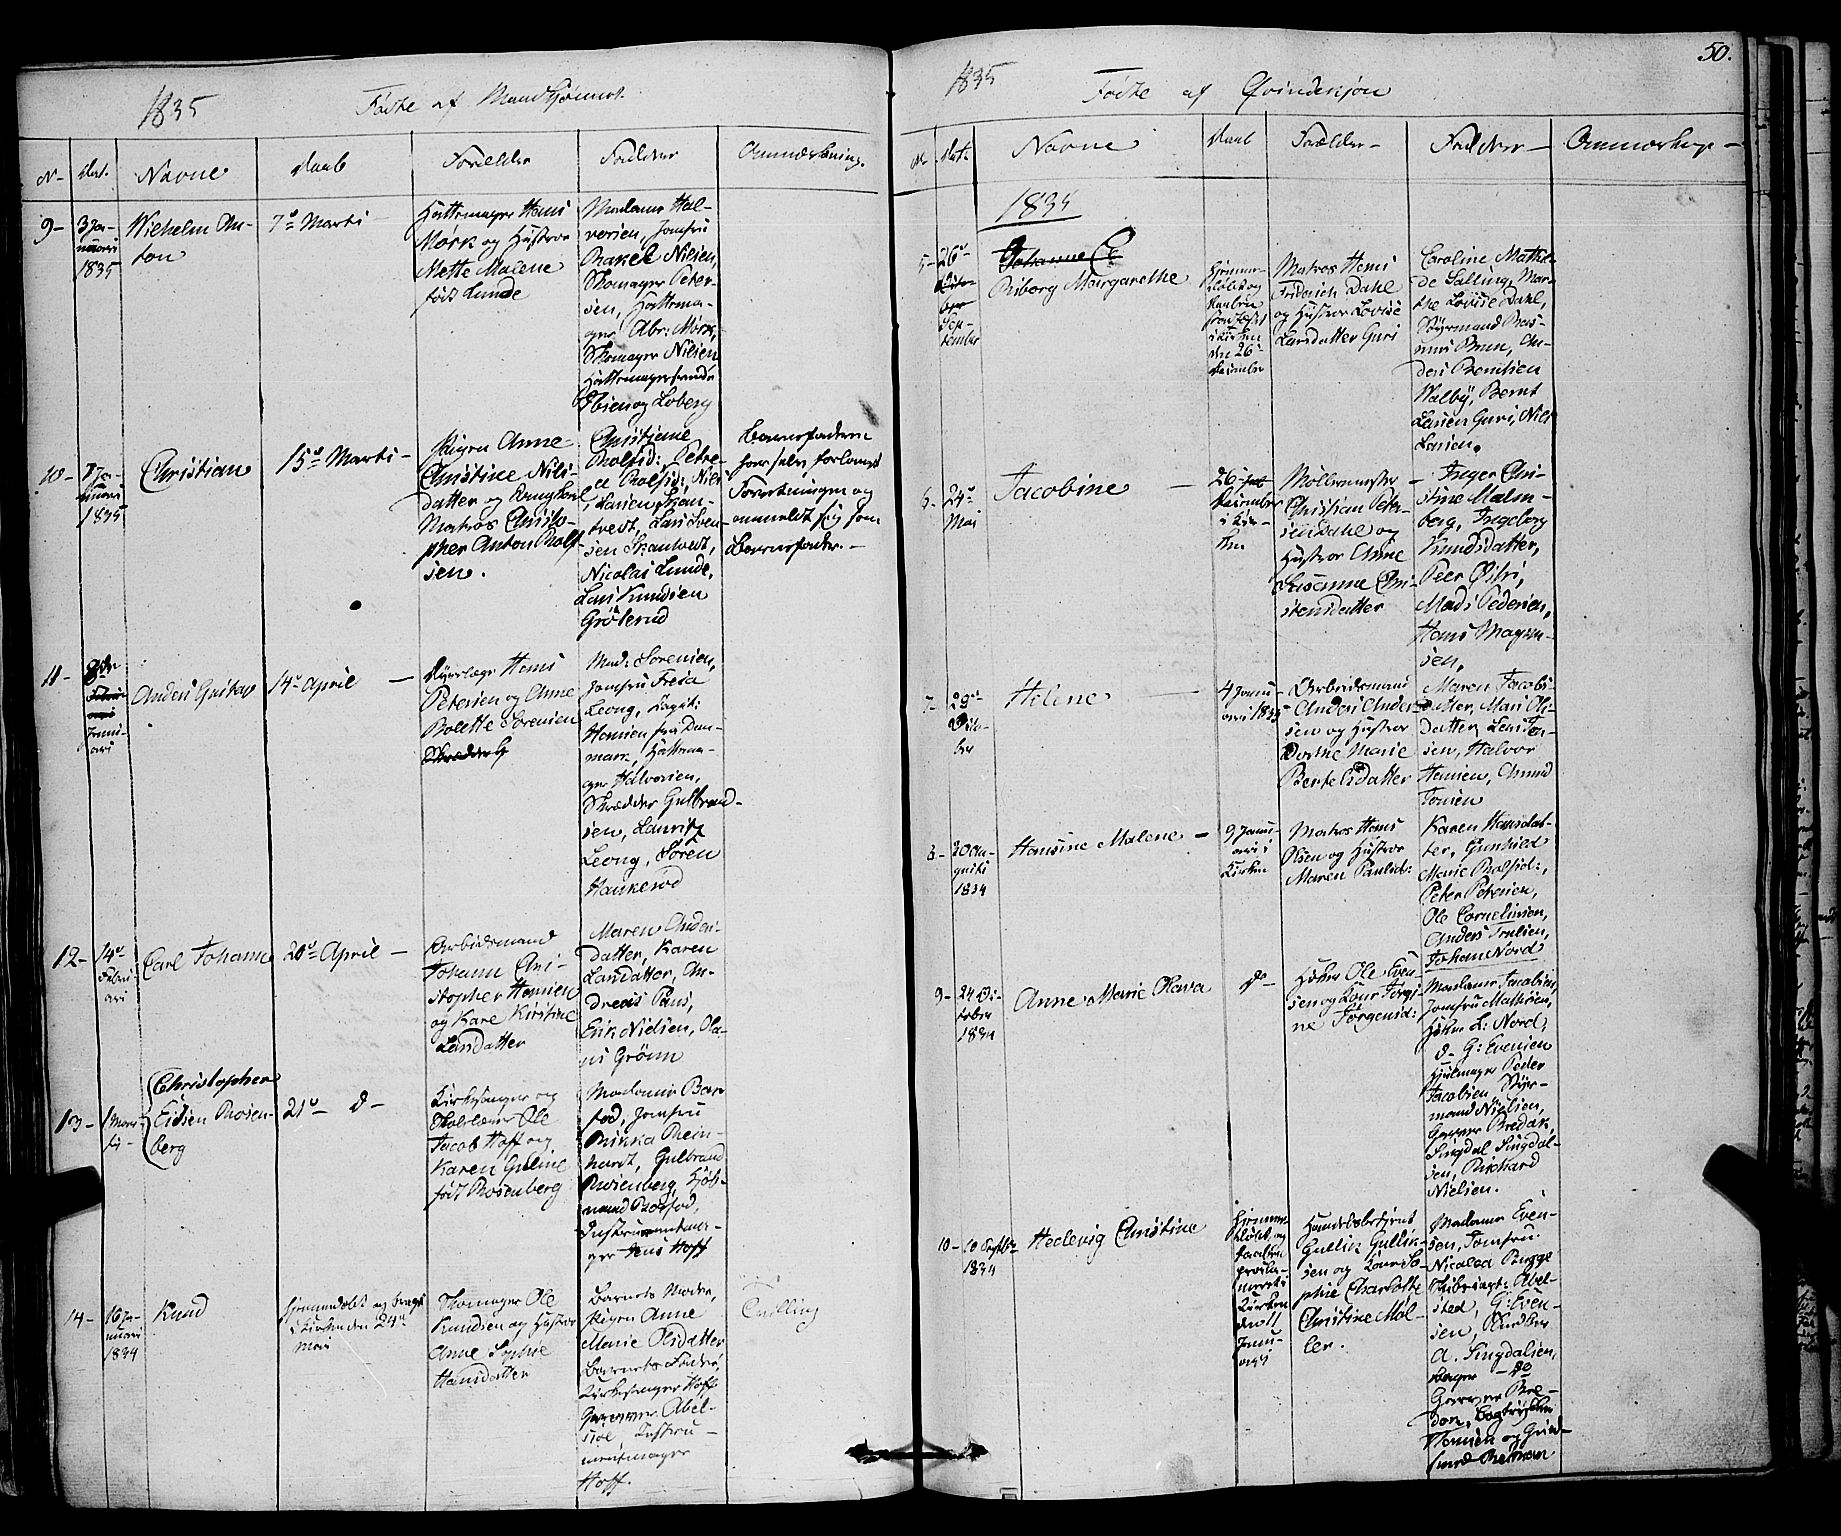 1835
Fødte af Mandkjønnet.
N-
Dat.
Navne
Daab
Forældre
Faddere
Anmærkning.
9-
3 Ja-
nuari
1835
Wilhelm An-
ton
7de Marti
Hattemager Hans
Mørk og Hustroe
Mette Malene
født Lunde
Madame Hal-
vorsen, Jomfru
Rakel Nilsen,
Skomager Peter-
sen, Hattema-
ger Abr: Mørk,
Skomager Nilsen
Hattemagersvende
Ibsen og Loberg
10-
1835
Christian
15de Marti -
Pigen Anne
Christine Nils-
datter og Ungkarl
Matros Christo-
pher Anton Rolf-
sen.
Christiane
Rolfsd:, Petre-
a Rolfsd: Nils
Larsen Skan-
tvedt, Lars Sven-
sen Skantvedt,
Nicolai Lunde,
Lars Knudsen
Gröterud
Barnefaderen
har selv forlangt
Forretningen og
anmeldt sig som
Barnefader. -
11-
Janu-
ari
Anders Gustav
14de April -
Dyrlæge Hans
Petersen og Anne
Bolette Sørensen
Mad: Sørensen,
Jomfru Fresa
Leong, Capit:
Hansen fra Dan-
mark, Hattema-
ger Halvorsen,
Skrædder Gulbrand-
sen, Lauritz
Leong, Søren
Haukerød
12-
14de
Febru-
ari
Carl Johann
20de April -
Arbeidsmand
Johann Chri-
stopher Hansen
og Kare Kirstine
Larsdatter
Maren Anders-
datter, Karen
Larsdatter, An-
dreas Paus,
Erik Nielsen, Ola-
us Grönn
13-
1 Mar-
ti-
Christopher
Eidsen Rosen-
berg
21de d-
Kirkesanger og
Skolelærer Ole
Jacob Hoff og
Karen Guline
født Rosenberg
Madame Bar-
fod, Jomfru
Rikka Rein-
hardt, Gulbrand
Rosenberg, Kjøb-
mand Barfod,
Instrumentma-
ger Jens Hoff
14-
16 Ja-
nuari
1834
Knud
Hjemmedøbt og bragt
i Kirken den 24de
Mai
Skomager Ole
Knudsen og Hustroe
Anne Sophie
Hansdatter
Barnets Moder,
Pigen Anne
Marie Olsdatter
Barnets Fader,
Kirkesanger Hoff
Garver Abel-
sted Instru-
mentmager
Hoff.
Tvilling
1835
Fødte af Qvindekjøn
50.
N-
Dat.
Navne
Daab
Forældre -
Faddere -
Anmærkning -
1834
5-
26de
Sep-
tember
Johanne C
Riborg Margarethe
Hjemme-
døbt og
Daaben
i Kirken
den 26de
December
Matros Hans
Friderich Dahl
og Hustroe Lovise
Larsdatter Guri
Caroline Mathil-
de Salling, Mar-
the Lovise Dahl,
Styrmand Ras-
mus Brun, An-
ders Berntsen
Walby, Bernt
Larsen Guri, Nils
Larsen.
6-
24de
Mai
Jacobine -
26
December
i Kir-
ken
Møllemester
Christian Peter-
sen Dahl og
Hustroe Anne
Susanne Chri-
stensdatter
- Inger Chri-
stine Malm-
berg, Ingeborg
Knudsdatter,
Peer Østri,
Mads Pedersen,
Hans Magnu-
sen,
7-
29de
Octo-
ber
Helene -
4 Janu-
ari 1835
Arbeidsmand
Anders Ander-
sen og Hustroe
Dorthe Marie
Bertelsdatter
Maren Jacobs-
datter, Mari Ols-
datter, Lars Jen-
sen, Halvor
Hansen, Amund
Jonsen
8-
20 Au-
gusti
1834
Hansine Malene -
9 Janu-
ari i
Kirken
Matros Hans
Olsen og Hustroe
Maren Paulsd:
Karen Hansdat-
ter, Gunhild
Marie Rolfsd:,
Peter Petersen,
Ole Corneliusen,
Anders Trulsen,
Johan Nord
9-
24 Oc-
tober
1834
Anne Marie Olava
do
Høker Ole Even-
sen og Kone Jørgi-
ne Jørgensd:
Madame Jacobsen,
Jomfru Mathisen,
Høker L: Nord,
d- G: Evensen
Hjulmager Peder
Jacobsen, Styr-
mand Nielsen,
Garver Bredak,
Singdal Singdal-
sen, Rikhard
Nielsen.
10-
10 Septbr
1834
Hedevig Christine
Hjemme-
døbt og
Daaben
Kirken
den 11
Janu-
ari
Handelsbetjent
Gullik Gullik-
sen og Kone So-
phie Charlotte
Christine Møl-
ler.
Madame Even-
sen, Jomfru
Nicolea Bugge
Abel-
sted, G: Even-
sen,
A. Singdalsen,
Bager - do
Garver Bre-
dan, Bogtrykker
Hansen og